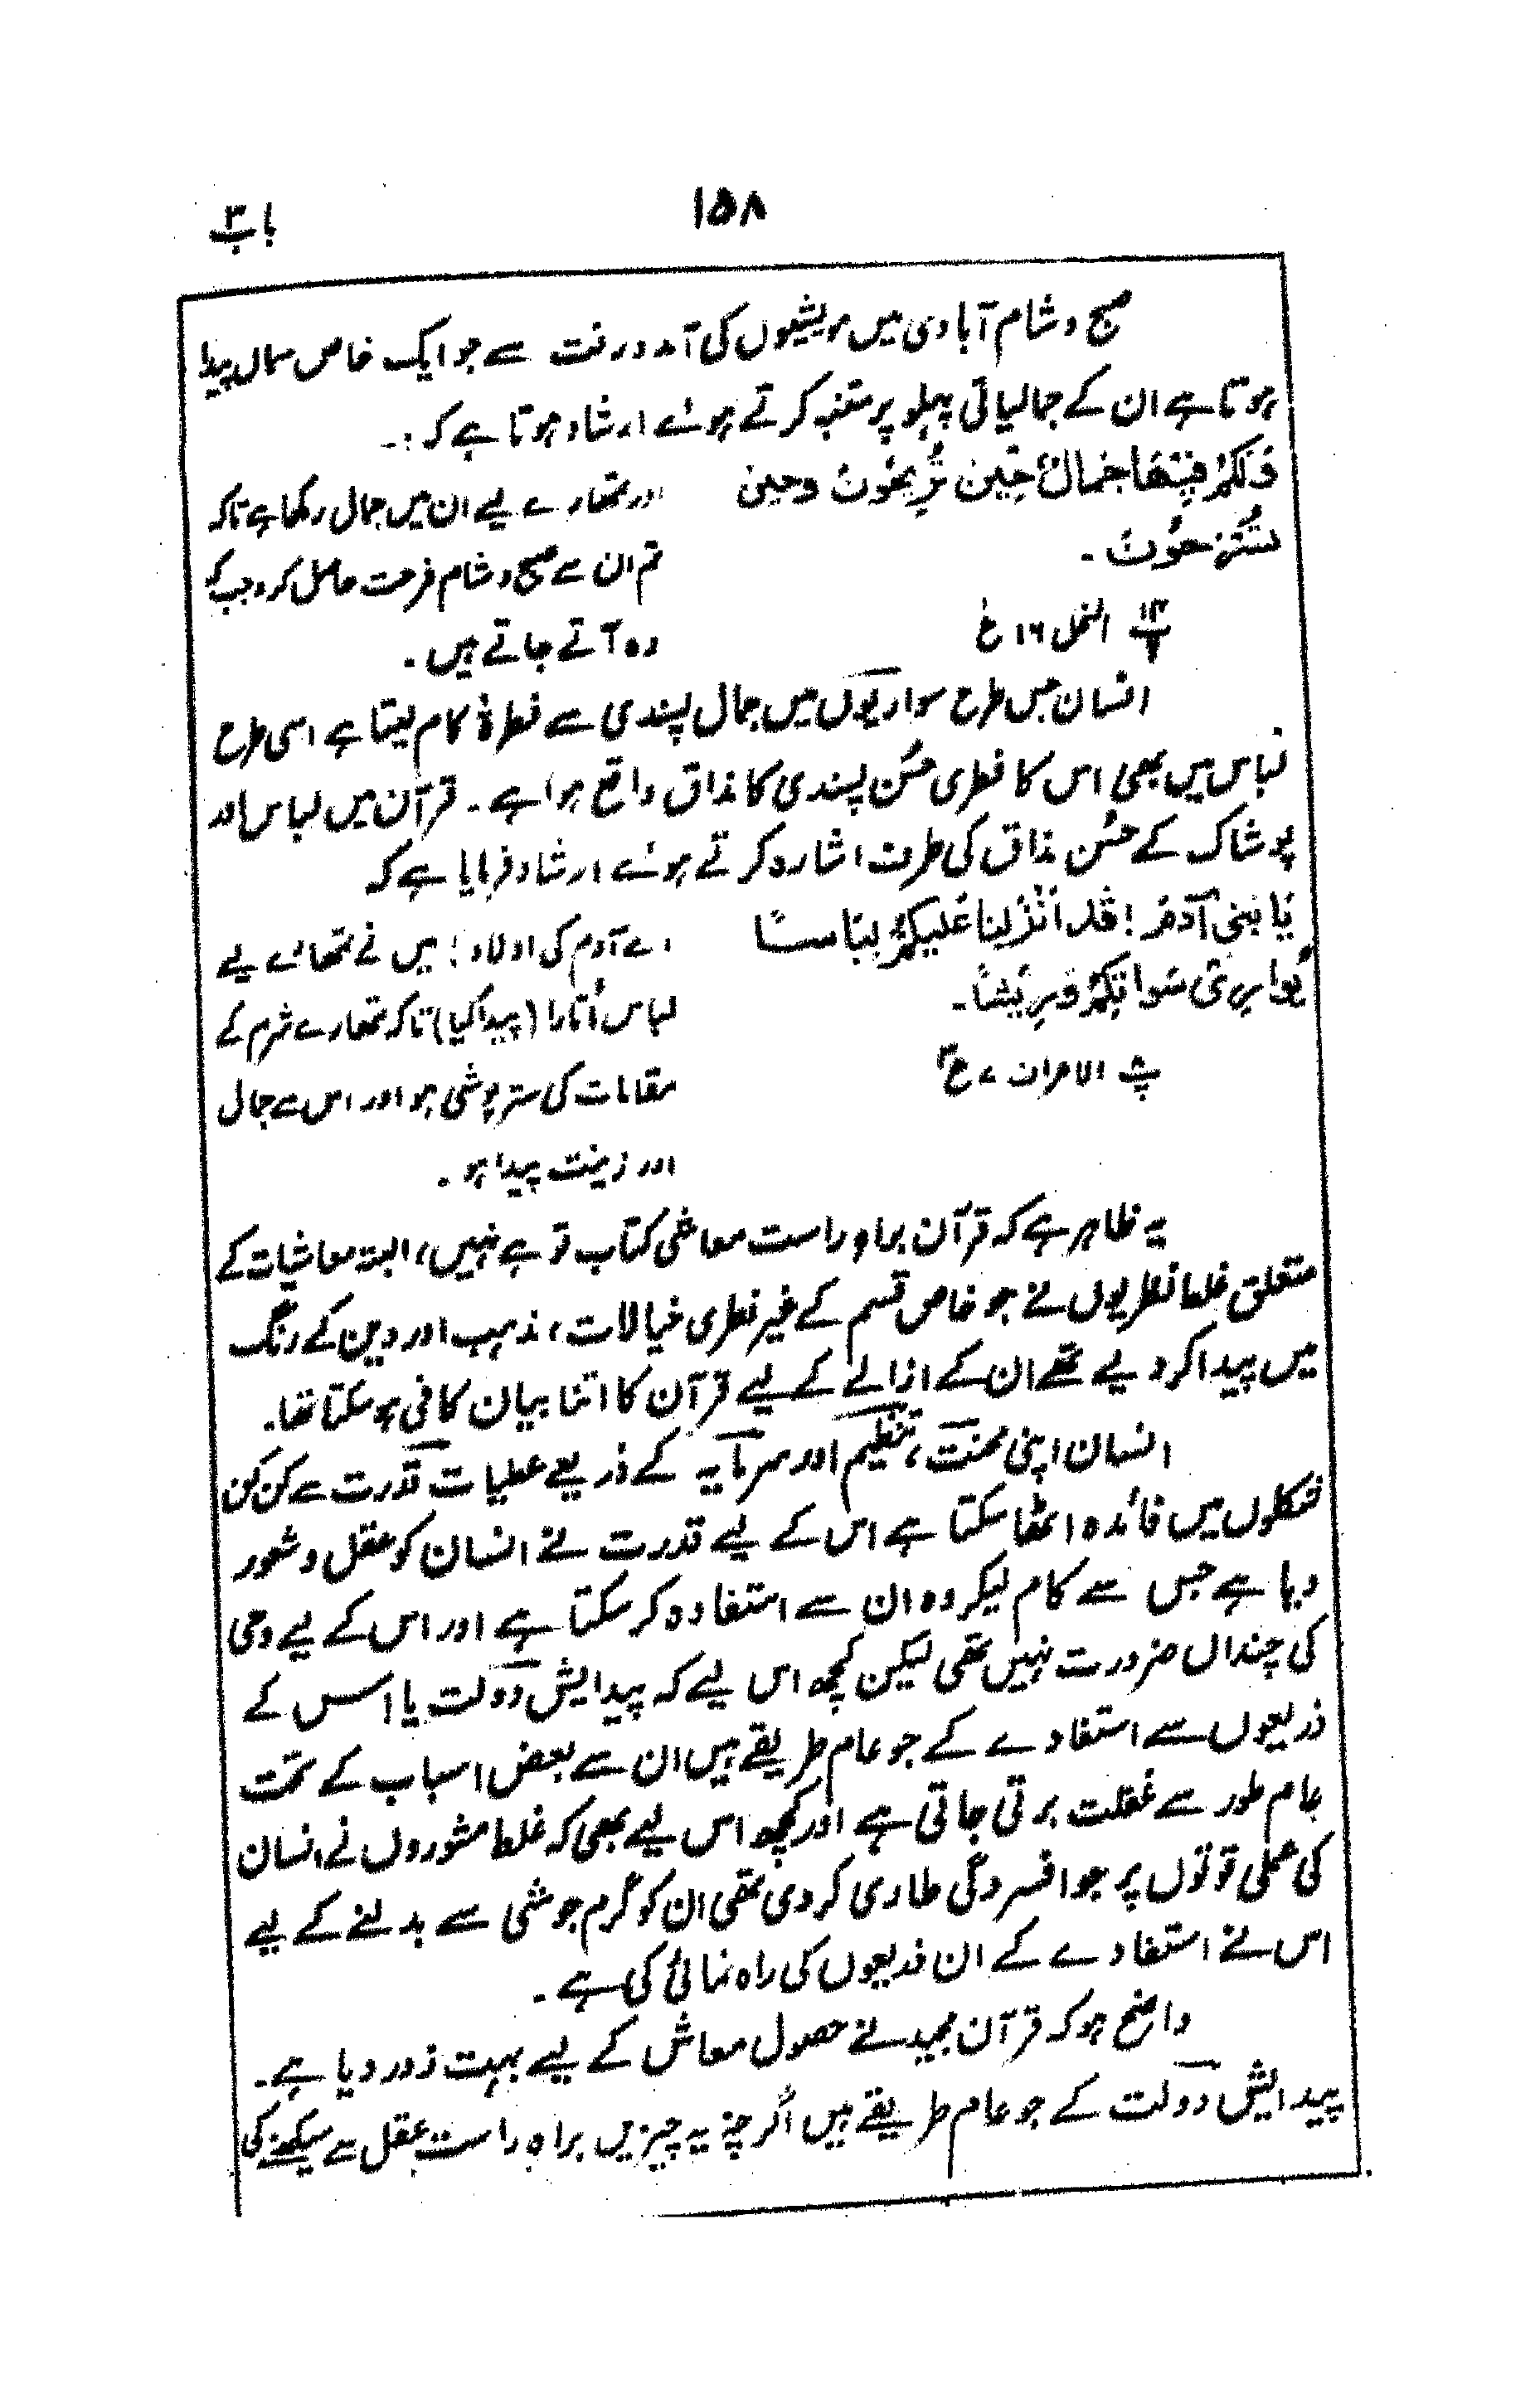 باب ۳
۱۵۸
صبح و شام آبادی میں مویشیوں کی آمد و رفت سے جو ایک خاص سماں پیدا
ہوتا ہے ان کے جمالیاتی پہلو پر متنبہ کرتے ہوئے ارشاد ہوتا ہے کہ :-
وَلَكُمْ فِيْهَا جَمَالٌ حِيْنَ تُرِيْحُوْنَ وحِيْنَ
تَسْرَحُوْنَ -
النحل ۱۶ ع
اور تمھارے لیے ان میں جمال رکھا ہے تاکہ
تم ان سے صبح و شام فرحت حاصل کرو جب کہ
وہ آتے جاتے ہیں ۔
انسان جس طرح سواریوں میں جمال پسندی سے فطرۃً کام لیتا ہے اسی طرح
لباس میں بھی اس کا فطری حُسن پسندی کا مذاق واقع ہوا ہے ۔ قرآن میں لباس اور
پوشاک کے حُسنِ مذاق کی طرف اشارہ کرتے ہوئے ارشاد فرمایا ہے کہ
يَا بَنِي آدَمَ ! قَد اَنْزَلْنَا عَلَيْكُمْ لِبَاسًا
يُوَارِي سَوْاٰتِكُمْ وَرِيْشًا -
پ۸ الاعراف ۷ ع
اے آدم کی اولاد ! میں نے تمھارے لیے
لباس اُتارا (پیدا کیا) تاکہ تمھارے شرم کے
مقامات کی ستر پوشی ہو اور اس سے جمال
اور زینت پیدا ہو ۔
یہ ظاہر ہے کہ قرآن براہِ راست معاشی کتاب تو ہے نہیں، البتہ معاشیات کے
متعلق غلط نظریوں نے جو خاص قسم کے غیر فطری خیالات، مذہب اور دین کے رنگ
میں پیدا کر دیے تھے ان کے ازالے کے لیے قرآن کا اتنا بیان کافی ہو سکتا تھا۔
انسان اپنی محنت، تنظیم اور سرمایہ کے ذریعے عطیات قدرت سے کن کن
شکلوں میں فائدہ اٹھا سکتا ہے اس کے لیے قدرت نے انسان کو عقل و شعور
دیا ہے جس سے کام لیکر وہ ان سے استفادہ کر سکتا ہے اور اس کے لیے وحی
کی چنداں ضرورت نہیں تھی لیکن کچھ اس لیے کہ پیدایش دولت یا اس کے
ذریعوں سے استفادے کے جو عام طریقے ہیں ان سے بعض اسباب کے تحت
عام طور سے غفلت برتی جاتی ہے اور کچھ اس لیے بھی کہ غلط مشوروں نے انسان
کی عملی قوتوں پر جو افسردگی طاری کر دی تھی ان کو گرم جوشی سے بدلنے کے لیے
اس نے استفادے کے ان ذریعوں کی راہ نمائی کی ہے ۔
واضح ہو کہ قرآن مجید نے حصول معاش کے لیے بہت زور دیا ہے ۔
پیدایش دولت کے جو عام طریقے ہیں اگرچہ یہ چیزیں براہِ راست عقل سے سیکھنے کی